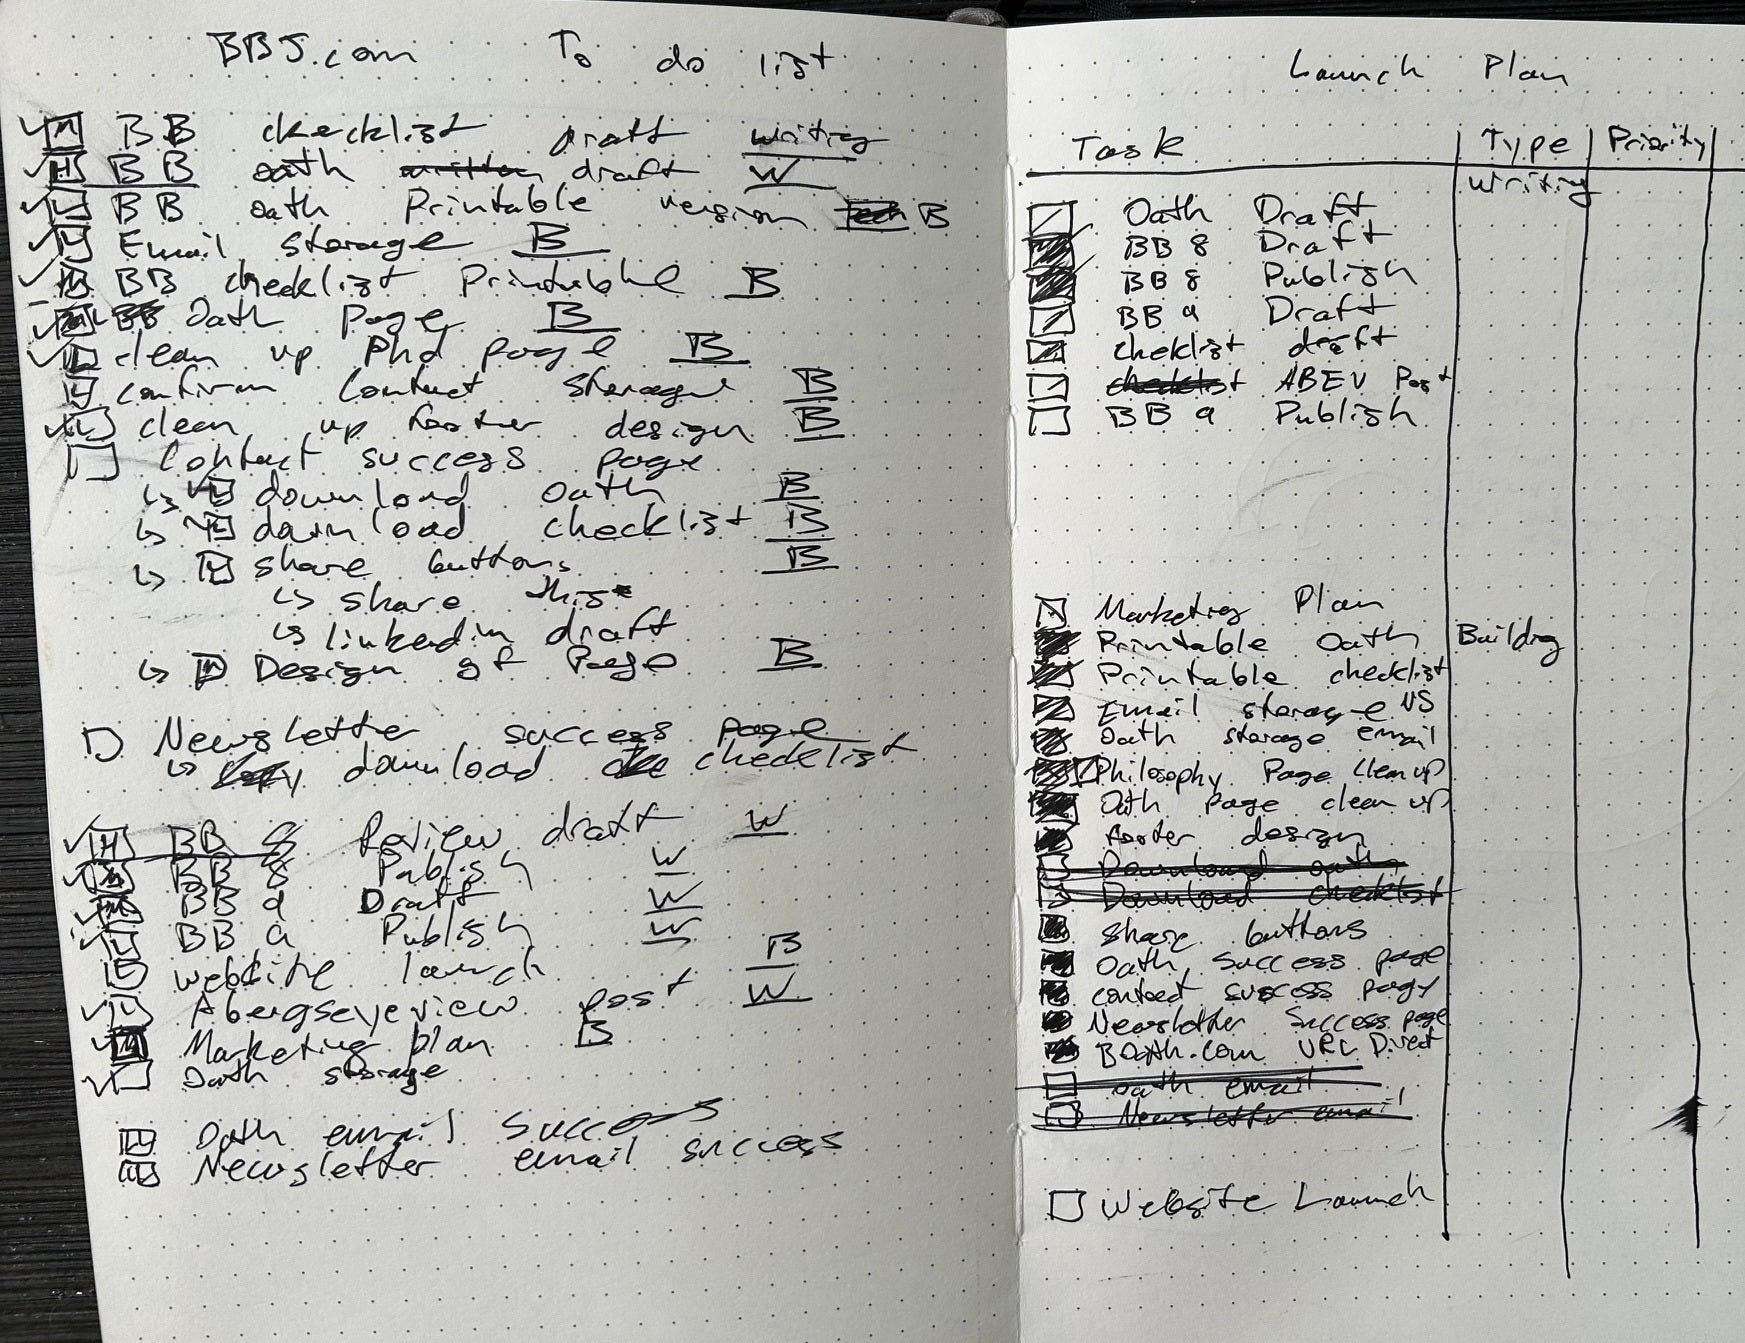 BBJ.com To do list
BB checklist draft writing
BB oath written draft W
BB oath Printable version B
Email storage B
BB checklist Printable B
BB Oath Page B
clean up Phd page B
confirm contact storage B
clean up footer design B
Contact success page
↳ download oath B
↳ download checklist B
↳ share buttons B
↳ share this
↳ linkedin draft
↳ Design of Page B
Newsletter success page
↳ download checklist
BB 8 Review draft W
BB 8 Publish W
BB 9 Draft W
BB 9 Publish W
website launch B
Abergseyeview post W
Marketing plan B
Oath storage
Oath email success
Newsletter email success
Launch Plan
Task Type Priority
writing
Oath Draft
BB 8 Draft
BB 8 Publish
BB 9 Draft
cheklist draft
checklist ABEV Post
BB 9 Publish
Marketing Plan
Printable Oath Building
Printable checklist
Email storage NS
Oath storage email
Philosophy Page Clean up
Oath Page clean up
footer design
Download oath
Download checklist
share buttons
Oath Success page
contact success page
Newsletter Success page
BOath.com URL Direct
oath email
Newsletter email
Website Launch